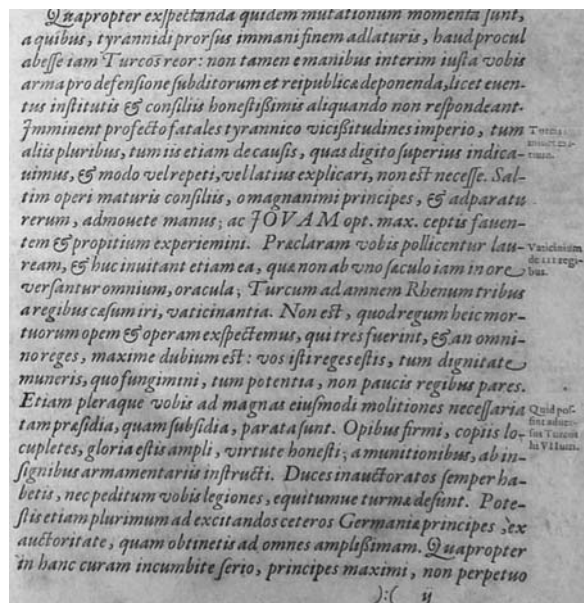 Quapropter exſpectanda quidem mutationum momenta ſunt,
a quibus, tyrannidi prorſus immani finem adlaturis, haud procul
abeſſe iam Turcos reor: non tamen e manibus interim iuſta vobis
arma pro defenſione ſubditorum et reipublicæ deponenda, licet euen-
tus inſtitutis & conſiliis honeſtißimis aliquando non reſpondeant.
Imminent profecto fatales tyrannico vicißitudines imperio, tum
aliis pluribus, tum iis etiam de cauſis, quas digito ſuperius indica-
uimus, & modo vel repeti, vel latius explicari, non eſt neceſſe. Sal-
tim operi maturis conſiliis, o magnanimi principes, & adparatu
rerum, admouete manus; ac JOVAM opt. max. ceptis fauen-
tem & propitium experiemini. Præclaram vobis pollicentur lau-
ream, & huc inuitant etiam ea, quæ non ab vno ſæculo iam in ore
verſantur omnium, oracula; Turcum ad amnem Rhenum tribus
a regibus cæſum iri, vaticinantia. Non eſt, quod regum heic mor-
tuorum opem & operam exſpectemus, qui tres fuerint, & an omni-
no reges, maxime dubium eſt: vos iſti reges eſtis, tum dignitate
muneris, quo fungimini, tum potentia, non paucis regibus pares.
Etiam pleraque vobis ad magnas eiuſmodi molitiones neceſſaria
tam præſidia, quam ſubſidia, parata ſunt. Opibus firmi, copiis lo-
cupletes, gloria eſtis ampli, virtute honeſti; a munitionibus, ab in-
ſignibus armamentariis inſtructi. Duces inauctoratos ſemper ha-
betis, nec peditum vobis legiones, equitumue turmæ deſunt. Pote-
ſtis etiam plurimum ad excitandos ceteros Germaniæ principes, ex
auctoritate, quam obtinetis ad omnes amplißimam. Quapropter
in hanc curam incumbite ſerio, principes maximi, non perpetuo
):( ij
Vaticinium
de III regi-
bus.
Quid poſ-